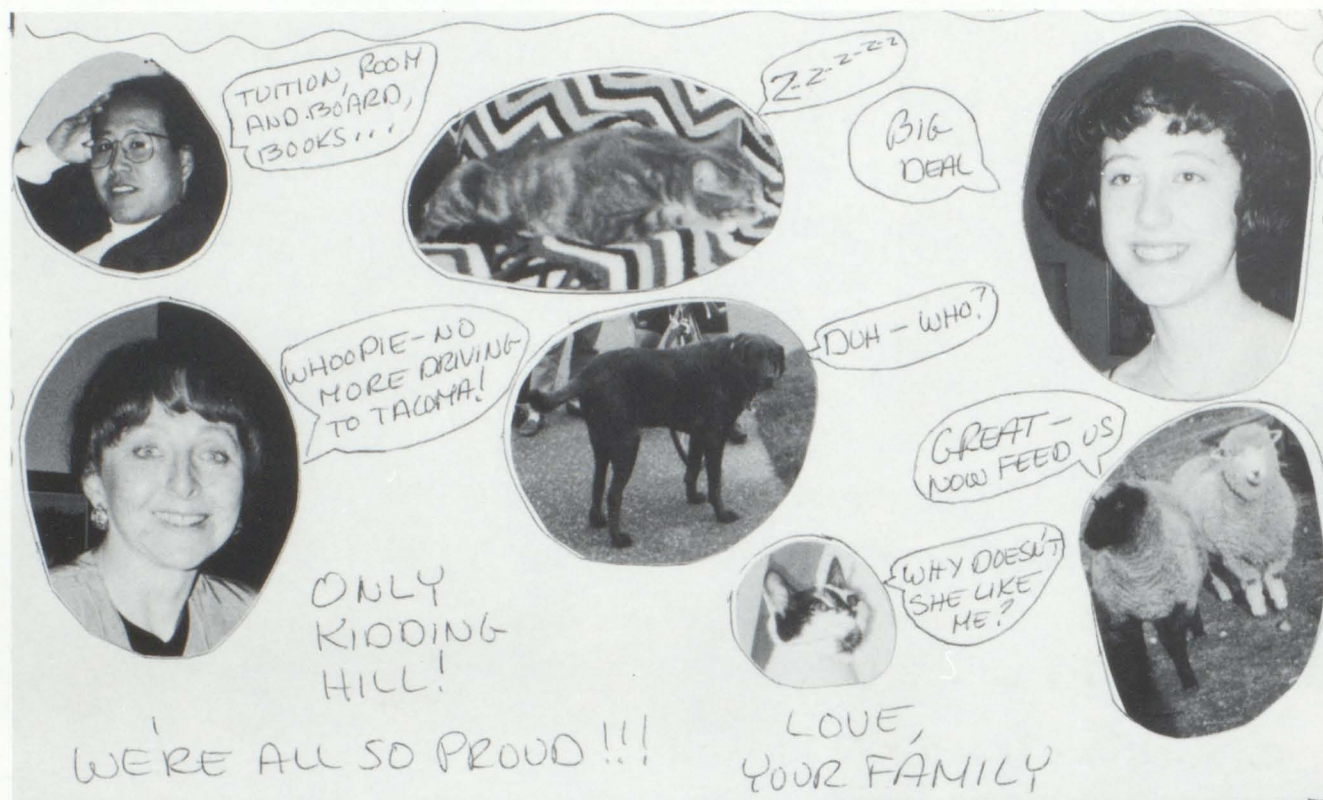 TUITION, ROOM
AND BOARD,
BOOKS...
Z-Z-Z-Z-Z
BIG
DEAL
WHOOPIE-NO
MORE DRIVING
TO TACOMA!
DUH - WHO?
GREAT-
NOW FEED US
WHY DOESN'T
SHE LIKE
ME?
ONLY
KIDDING
HILL!
WE'RE ALL SO PROUD!!!
LOVE,
YOUR FAMILY